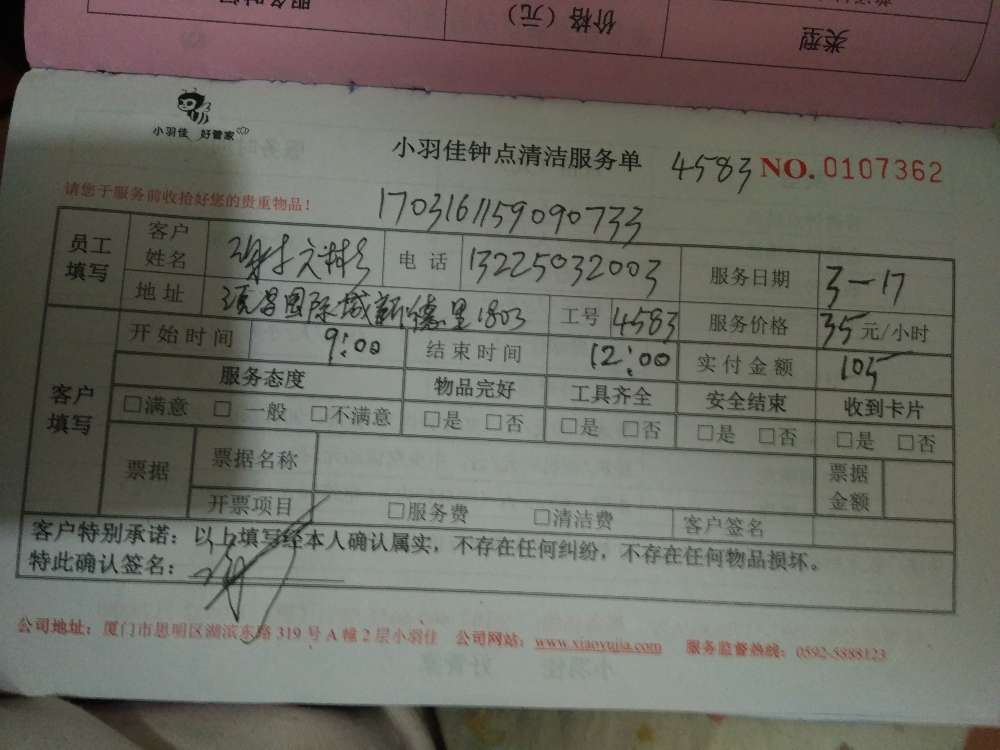 类型
价格（元）
小羽佳 好管家
小羽佳钟点清洁服务单 4583 NO. 0107362
请您于服务前收拾好您的贵重物品！
1703161159090733
员工填写 客户姓名 谢 电话 13225032003 服务日期 3-17
地址 国际城新德里1803 工号 4583 服务价格 35 元/小时
客户填写 开始时间 9:00 结束时间 12:00 实付金额 105
服务态度 物品完好 工具齐全 安全结束 收到卡片
□满意 □一般 □不满意 □是 □否 □是 □否 □是 □否 □是 □否
票据 票据名称 票据金额
开票项目 □服务费 □清洁费 客户签名
客户特别承诺：以上填写经本人确认属实，不存在任何纠纷，不存在任何物品损坏。
特此确认签名：
公司地址：厦门市思明区湖滨东路 319 号 A 幢 2 层小羽佳 公司网站：www.xiaoyujia.com 服务监督热线：0592-5888123